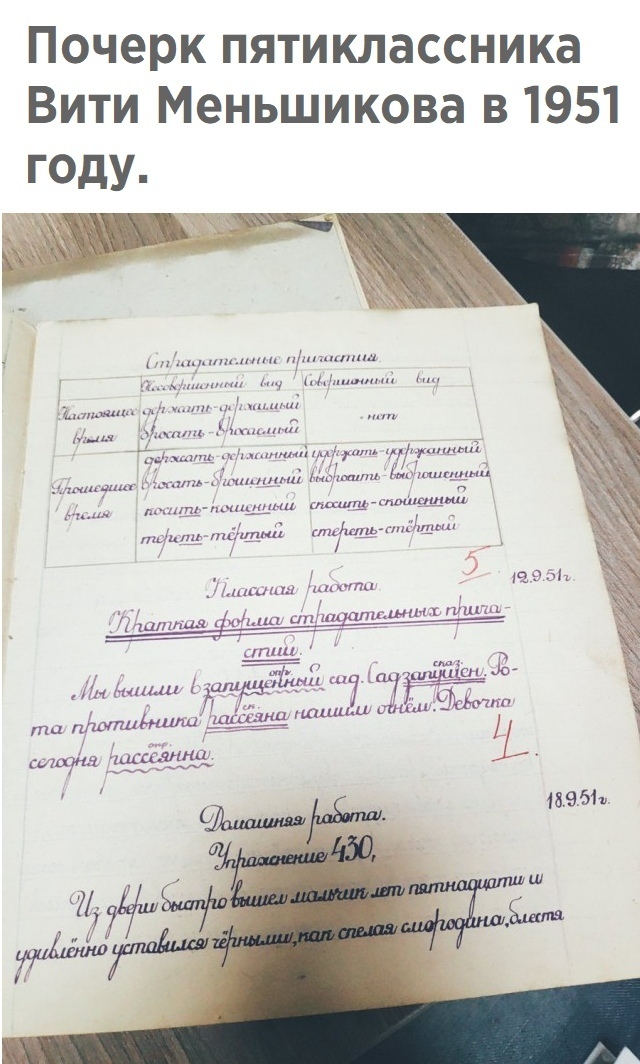 Почерк пятиклассника
Вити Меньшикова в 1951
году.
Страдательные причастия
Несовершенный вид Совершенный вид
Настоящее время
держать-держимый
бросать-бросаемый
- нет
Прошедшее время
держать-держанный удержать-удержанный
бросать-брошенный выбросить-выброшенный
косить-кошенный скосить-скошенный
тереть-тёртый стереть-стёртый
5
12.9.51г.
Классная работа.
Краткая форма страдательных прича-
стий.
опр. сказ.
Мы вышли в запущенный сад. Сад запущен. Ро-
ск.
та противника рассеяна нашим огнём. Девочка
опр.
сегодня рассеянна.
4
18.9.51г.
Домашняя работа.
Упражнение 430,
Из двери быстро вышел мальчик лет пятнадцати и
удивлённо уставился чёрными, как спелая смородина, блестя